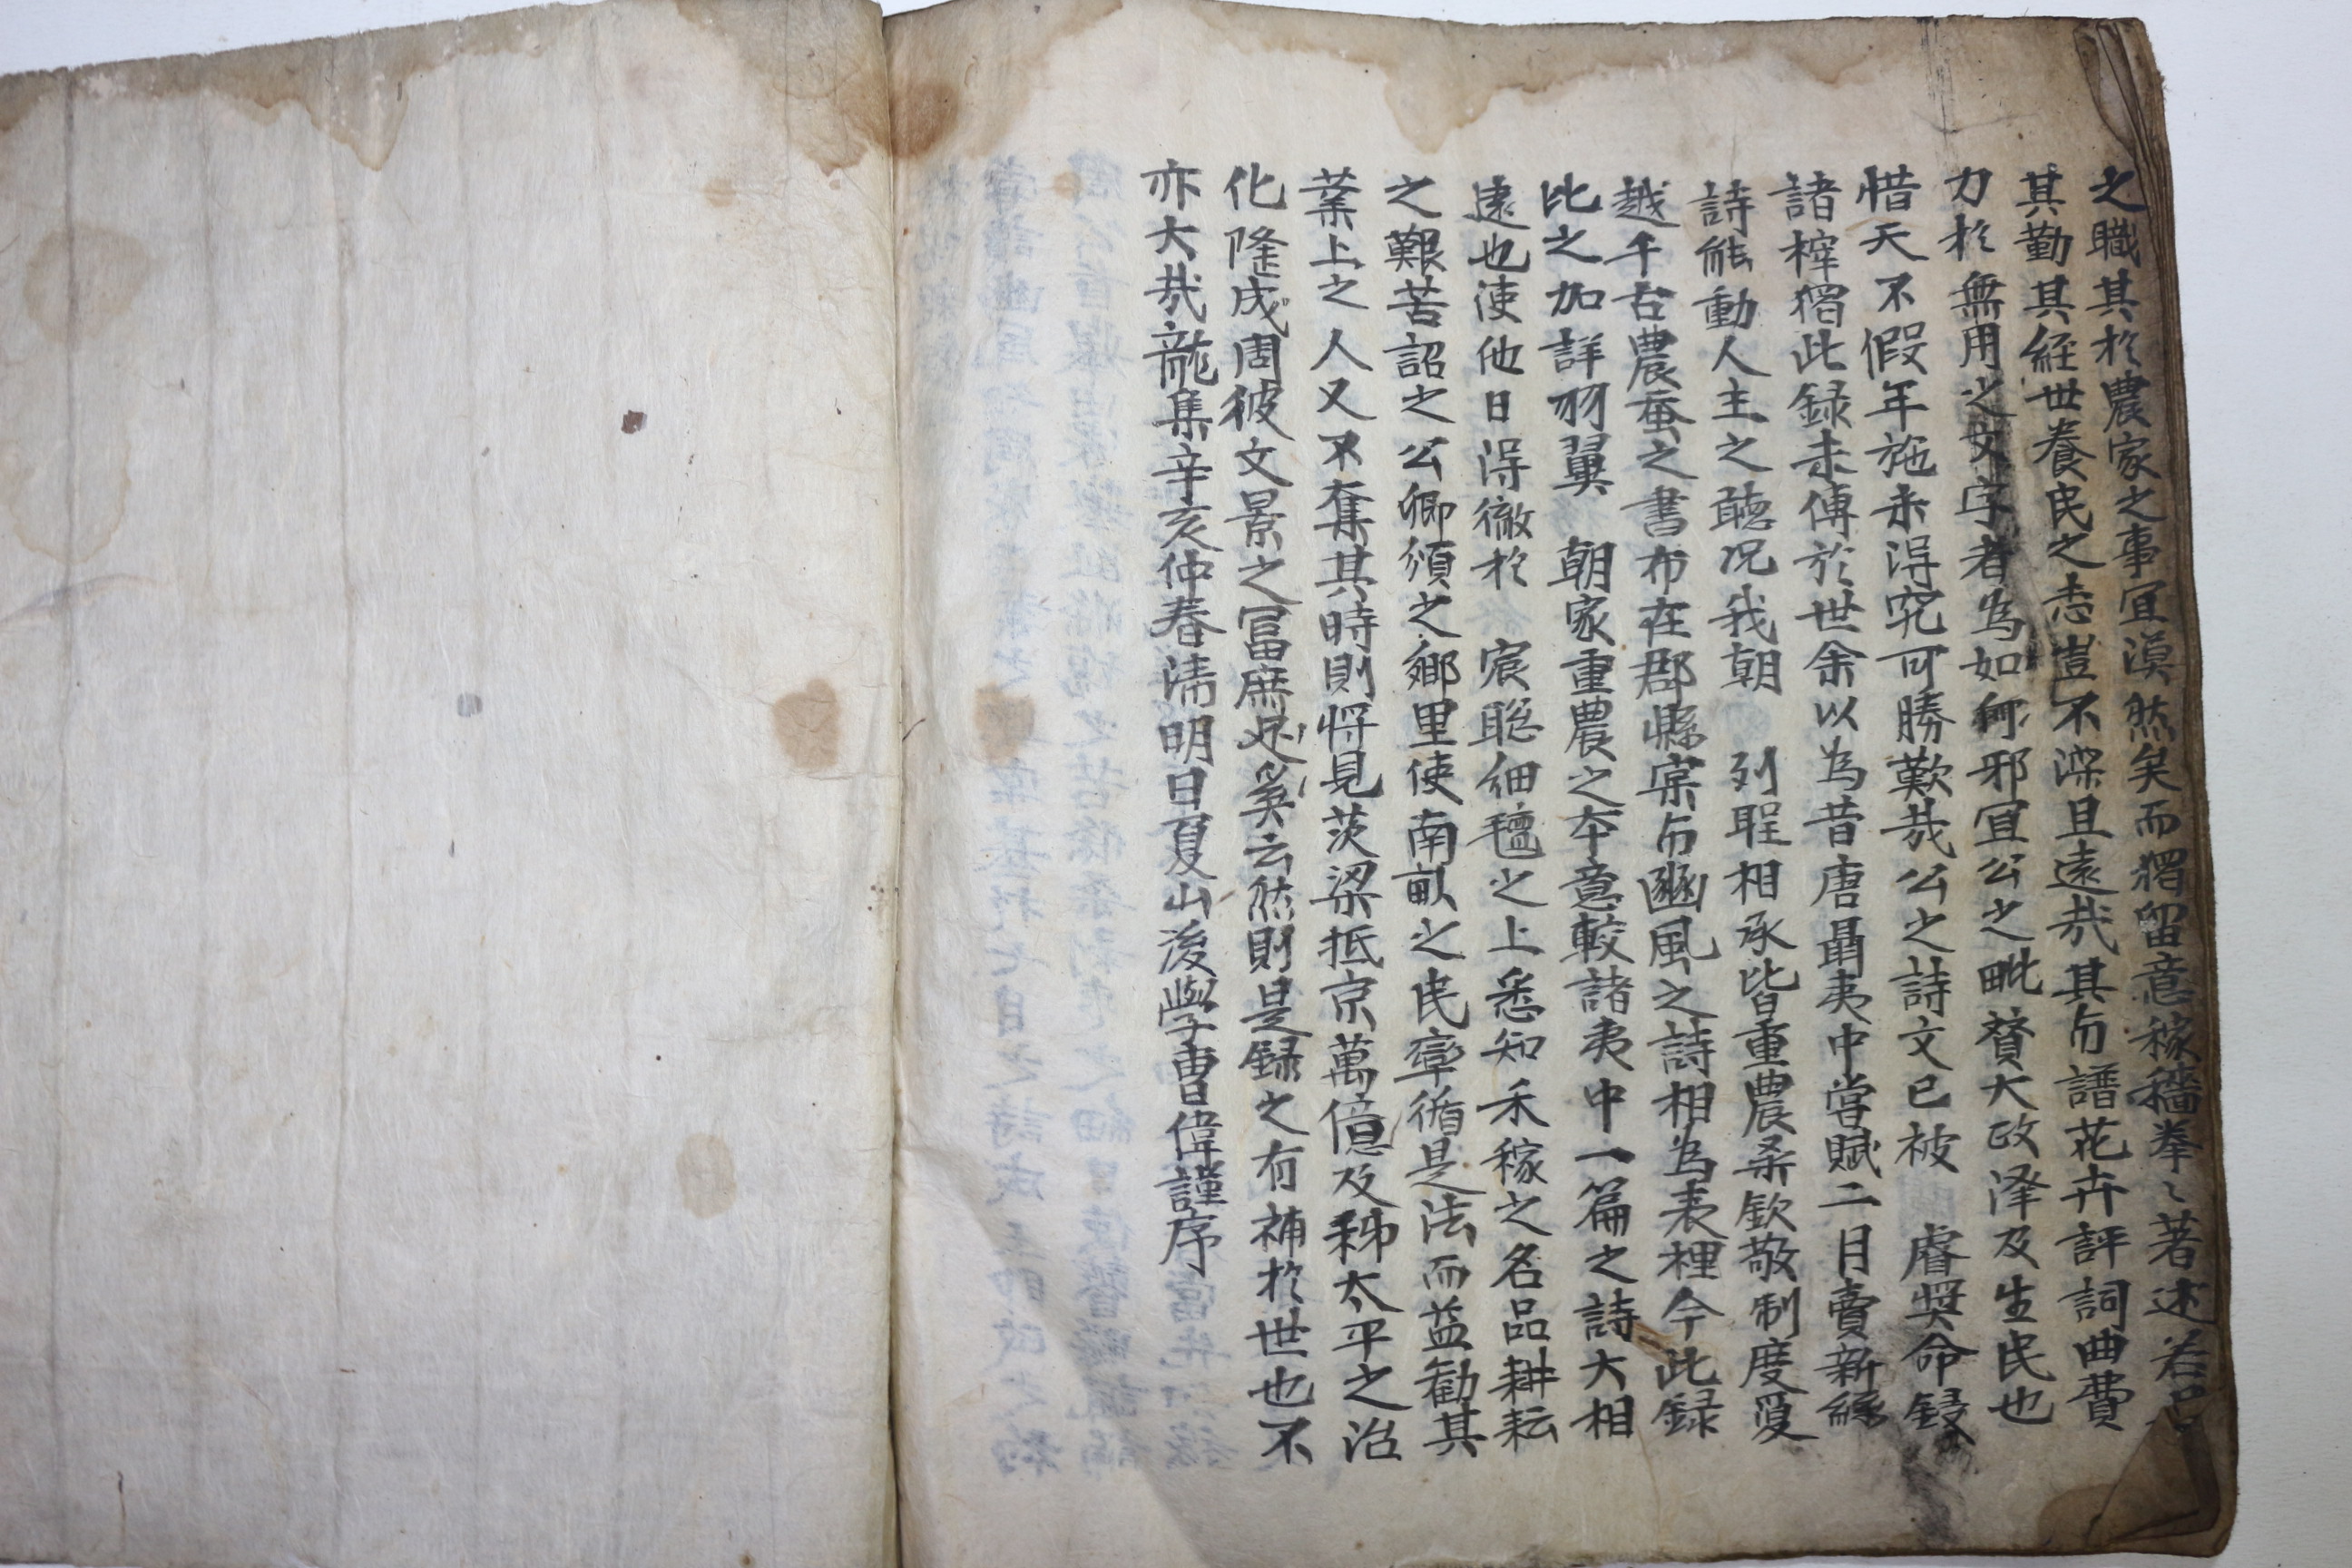 之職其於農家之事宜漠然矣而獨留意稼穡拳〻著述若是
其勤其經世養民之志豈不深且遠哉其与譜花卉評詞曲費
力於無用之文字者為如何邪宜公之毗賛大政泽及生民也
惜天不假年施未得究可勝歎哉公之詩文已被 睿奬命錄
諸梓獨此録未傳於世余以為昔唐聶夷中嘗賦二月賣新絲
詩能動人主之聽况我朝 列聖相承皆重農桑欽敬制度夐
越千古農蚕之書布在郡縣宲与豳風之詩相為表裡今此録
比之加詳羽翼 朝家重農之夲意較諸夷中一篇之詩大相
遠也使他日得徹於 宸聡細氊之上悉知禾稼之名品耕耘
之艱苦詔之公卿頒之鄉里使南畝之民率循是法而益勸其
業上之人又不奪其時則将見茨梁抵京萬億及秭太平之治
化隆成周彼文景之冨庶足奚云然則是録之有補於世也不
亦大哉龍集辛亥仲春淸明日夏山後學曺偉謹序